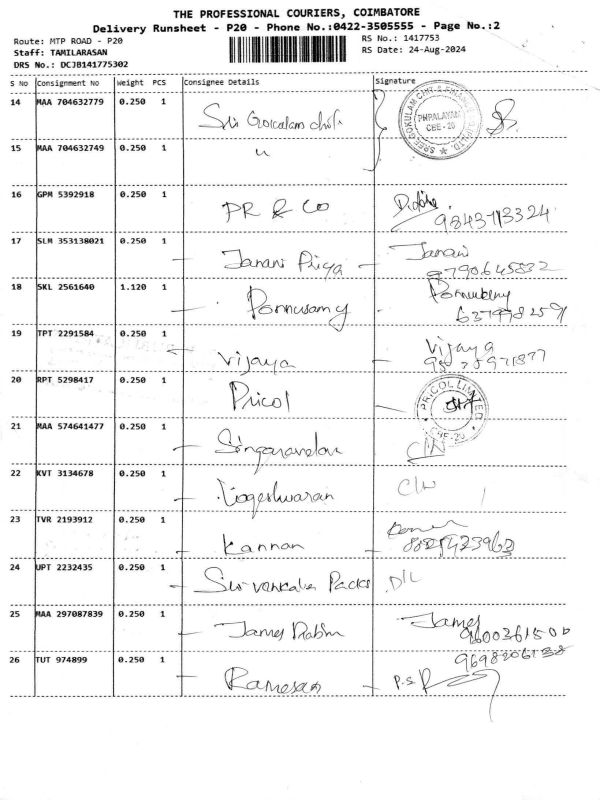 THE PROFESSIONAL COURIERS, COIMBATORE
Delivery Runsheet - P20 - Phone No.:0422-3505555 - Page No.:2
Route: MTP ROAD - P20
Staff: TAMILARASAN
DRS No.: DCJB141775302
RS No.: 1417753
RS Date: 24-Aug-2024
S No Consignment No Weight PCS Consignee Details Signature
14 MAA 704632779 0.250 1 Sri Gokulam chit.
PHPALAYAM
CBE-20
15 MAA 704632749 0.250 1 "
16 GPM 5392918 0.250 1 PR & Co
9843713324
17 SLM 353138021 0.250 1 Janani Priya - Janani
9790645832
18 SKL 2561640 1.120 1 Ponnusamy
6379782591
19 TPT 2291584 0.250 1 Vijaya - Vijaya
20 RPT 5298417 0.250 1 Pricol
PRICOL LIMITED
CBE-20
21 MAA 574641477 0.250 1
22 KVT 3134678 0.250 1 Yogeshwaran
23 TVR 2193912 0.250 1 Kannan
24 UPT 2232435 0.250 1 Sri venkates Packs
25 MAA 297087839 0.250 1 James Prabhu - James
26 TUT 974899 0.250 1 Ramesan - P.S